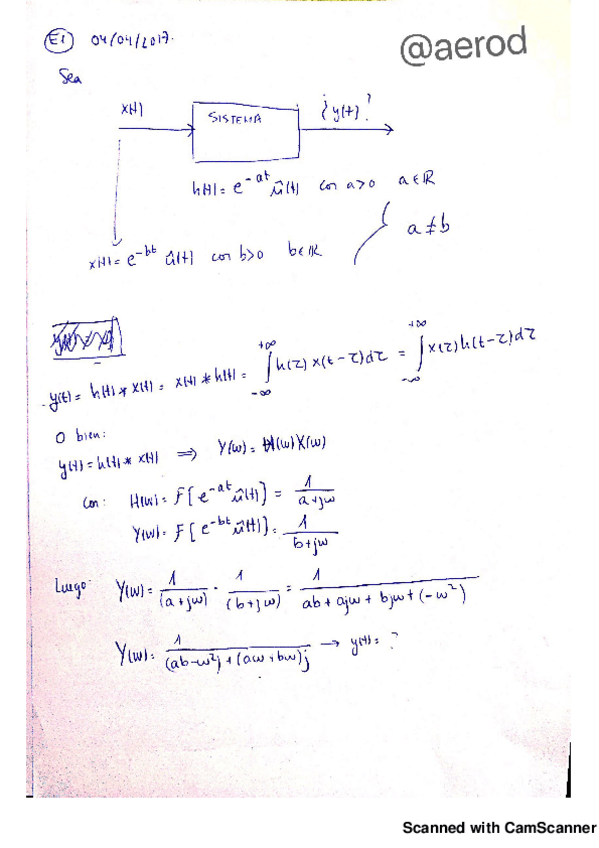 E1 04/04/2017.
@aerod
Sea
x(t) SISTEMA ¿y(t)?
h(t) = e^{-at} û(t) con a>0 a∈ℝ
a ≠ b
x(t) = e^{-bt} û(t) con b>0 b∈ℝ
y(t) = h(t) * x(t) = x(t) * h(t) = ∫_{-∞}^{+∞} h(τ) x(t-τ)dτ = ∫_{-∞}^{+∞} x(τ) h(t-τ)dτ
O bien:
y(t) = h(t) * x(t) ⟹ Y(w) = H(w) X(w)
Con: H(w) = F[e^{-at} û(t)] = 1/(a+jw)
Y(w) = F[e^{-bt} û(t)] = 1/(b+jw)
Luego: Y(w) = 1/(a+jw) · 1/(b+jw) = 1/(ab + ajw + bjw + (-w²))
Y(w) = 1/((ab-w²) + (aw+bw)j) → y(t) = ?
Scanned with CamScanner